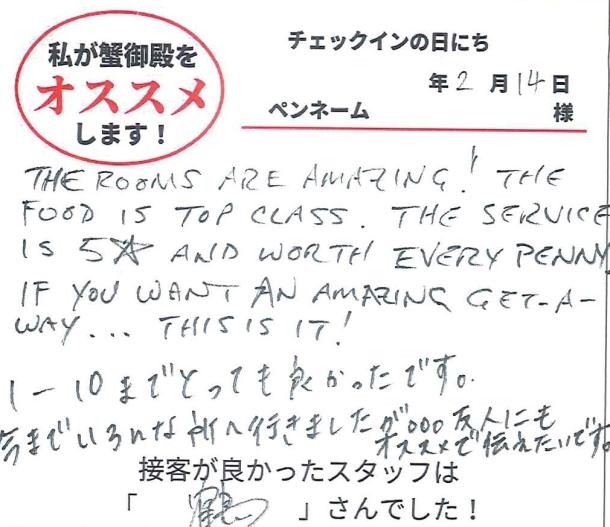 私が蟹御殿を
オススメ
します！
チェックインの日にち
年2月14日
ペンネーム 様
THE ROOMS ARE AMAZING! THE
FOOD IS TOP CLASS. THE SERVICE
IS 5☆ AND WORTH EVERY PENNY
IF YOU WANT AN AMAZING GET-A-
WAY... THIS IS IT!
1-10までとっても良かったです。
今までいろんな所へ行きましたが。。。友人にも
オススメで伝えたいです。
接客が良かったスタッフは
「鶴」さんでした！